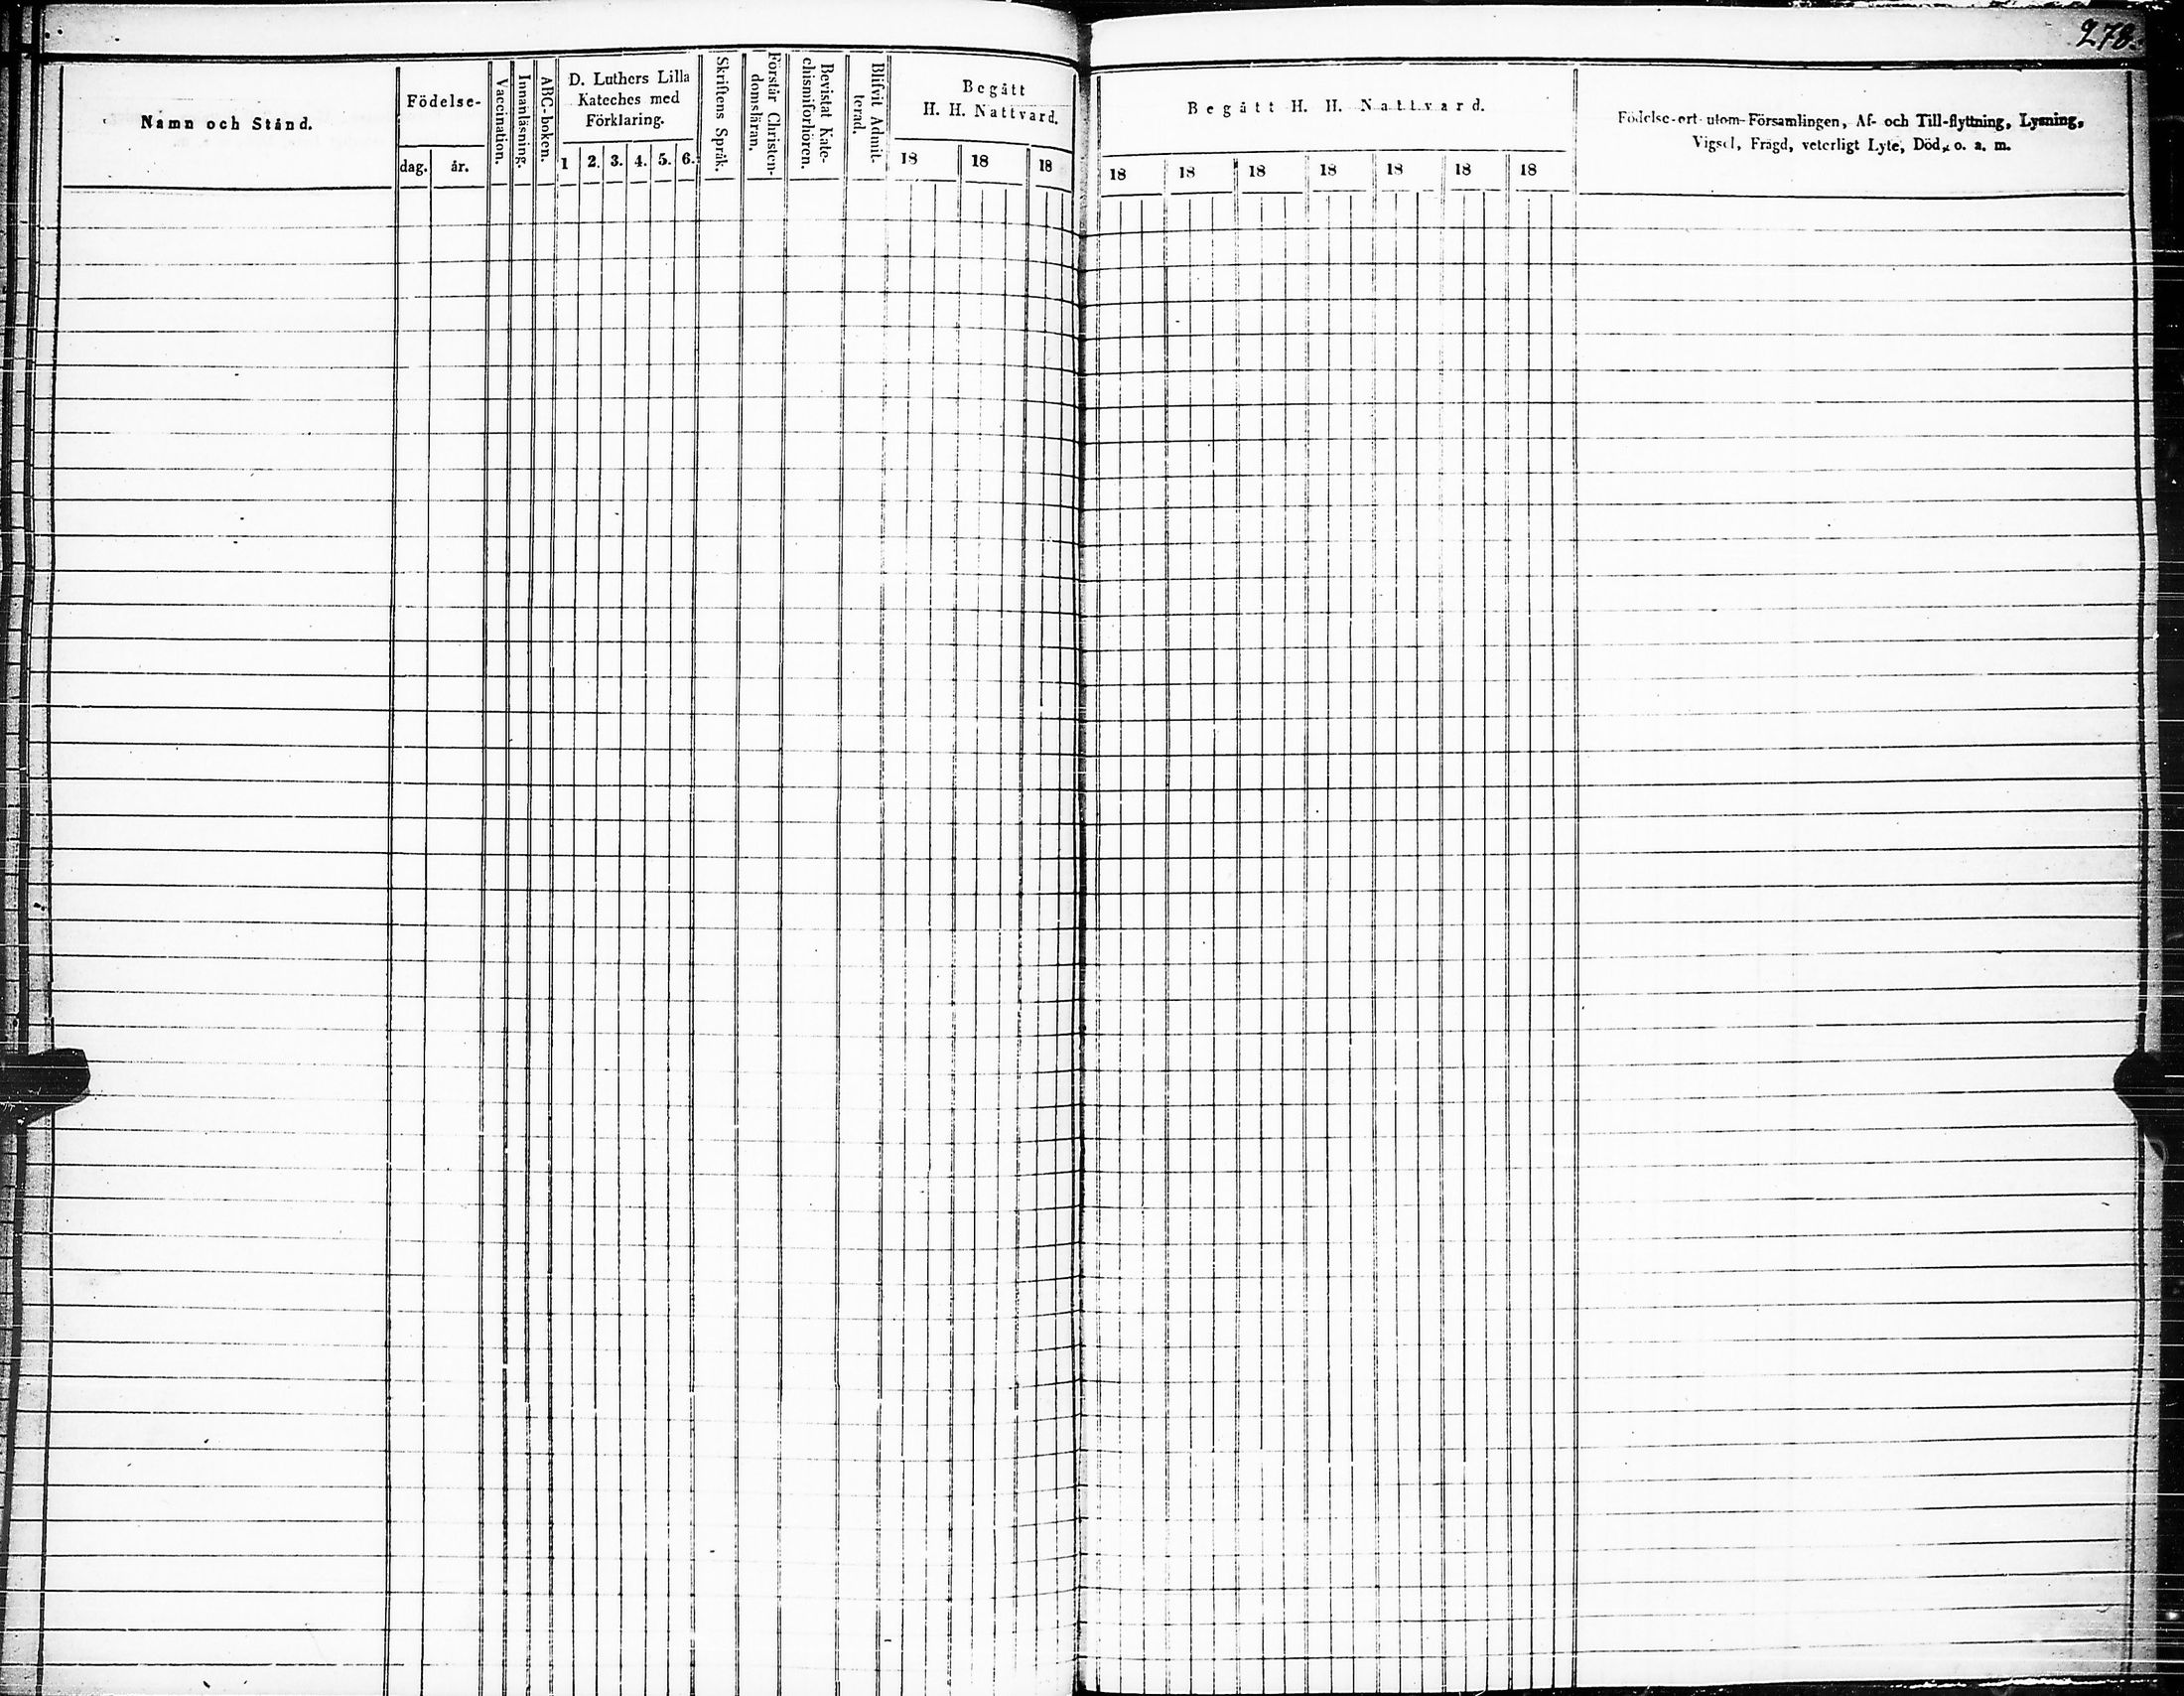 278.
Namn och Stånd.
Födelse-
dag.
år.
Vaccination.
Innanläsning.
ABC-boken.
D. Luthers Lilla
Kateches med
Förklaring.
1 2. 3. 4. 5. 6.
Skriftens Språk.
Förstår Christen-
domsläran.
Bevistat Kate-
chismiförhören.
Blifvit Admit-
terad.
Begått
H. H. Nattvard.
18 18 18
Begått H. H. Nattvard.
18 18 18 18 18 18 18
Födelse-ort utom Församlingen, Af- och Till-flyttning, Lysning,
Vigsel, Frägd, veterligt Lyte, Död, o. a. m.